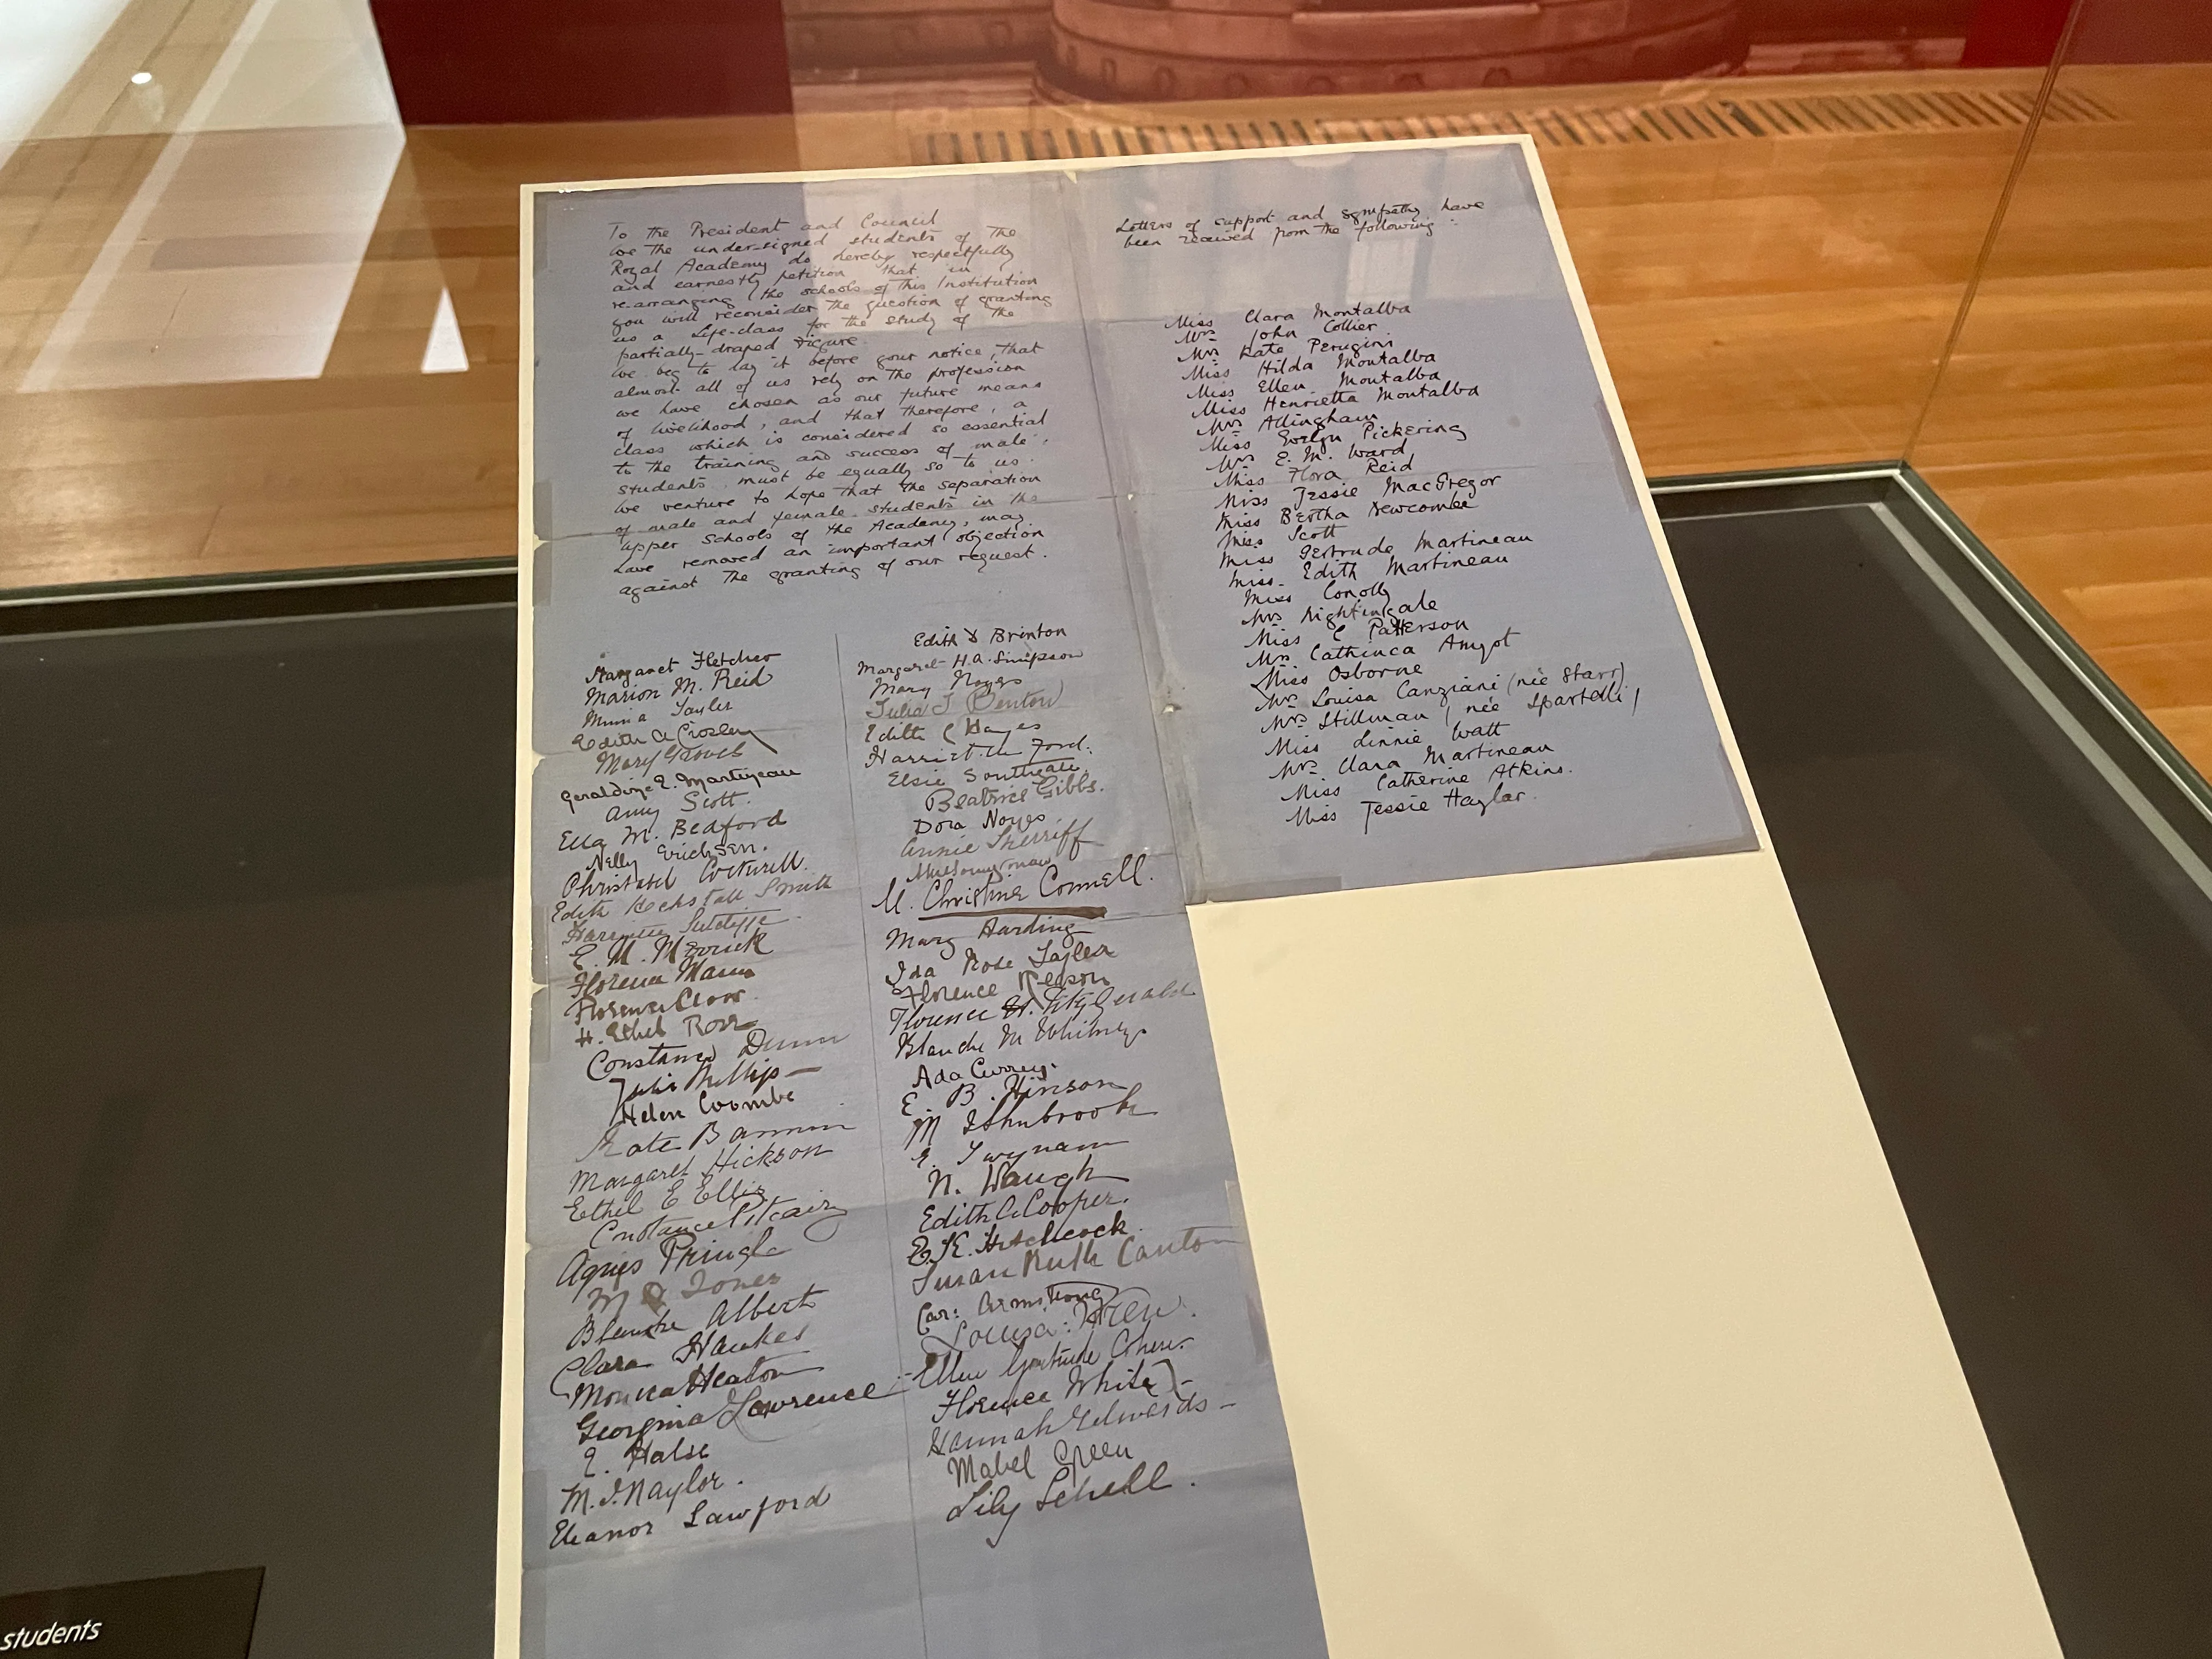 To the President and Council
We the under-signed students of the
Royal Academy do hereby respectfully
and earnestly petition that in
re-arranging the schools of this Institution
you will reconsider the question of granting
us a Life-class for the study of the
partially-draped Figure.
We beg to lay it before your notice, that
almost all of us rely on the profession
we have chosen as our future means
of livelihood, and that therefore, a
class which is considered so essential
to the training and success of male
students must be equally so to us.
We venture to hope that the separation
of male and female students in the
upper schools of the Academy, may
have removed an important objection
against the granting of our request.
Margaret Fletcher
Marion M. Reid
Minnie Tayler
Edith A Crosley
Mary Groves
Geraldine E. Martineau
Amy Scott.
Ella M. Bedford
Nelly Erichsen.
Christabel Cockerell.
Edith Heckstall Smith
Sutcliffe
E. M. Merrick
Florence Mann
Florence Clow
H. Ethel Rose
Constance Dunn
Julia Phillips
Helen Coombe
Kate
Margaret Hickson
Ethel E Ellis
Constance Pitcairn
Agnes Pringle
M Jones
Blanche Albert
Clara Hawkes
Monica Heaton
Georgina Lawrence
E. Halse
M. I. Naylor.
Eleanor Lawford
Edith Brinton
Margaret H.A. Simpson
Mary Noyes
Julia Benton
Edith C Hayes
Harriet Ford.
Elsie Southgate
Beatrice Gibbs.
Dora Noyes
Annie Sherriff
M. Christine Connell.
Mary Harding
Ida Rose Tayler
Florence Reason
Florence FitzGerald
Blanche M Whitney
Ada Currey.
E. B. Hinson
M
E. Twynam
N. Waugh
Edith A Cooper.
E. E. Hitchcock
Susan Ruth Canton
Car: Armstrong
Louisa Wren.
Ellen Gertrude Cohen.
Florence White
Hannah Edwards
Mabel Green
Lily Schell.
Letters of support and sympathy have
been received from the following:
Miss Clara Montalba
Mrs John Collier
Mrs Kate Perugini
Miss Hilda Montalba
Miss Ellen Montalba
Miss Henrietta Montalba
Mrs Allingham
Miss Evelyn Pickering
Mrs E. M. Ward
Miss Flora Reid
Miss Jessie MacGregor
Miss Bertha Newcombe
Miss Scott
Miss Gertrude Martineau
Miss Edith Martineau
Miss Conolly
Mrs Nightingale
Miss C Patterson
Mrs Cathinca Amyot
Miss Osborne
Mrs Louisa Canziani (née Starr)
Mrs Stillman (née Spartelli)
Miss Linnie Watt
Mrs Clara Martineau
Miss Catherine Atkins.
Miss Jessie Haylar.
students